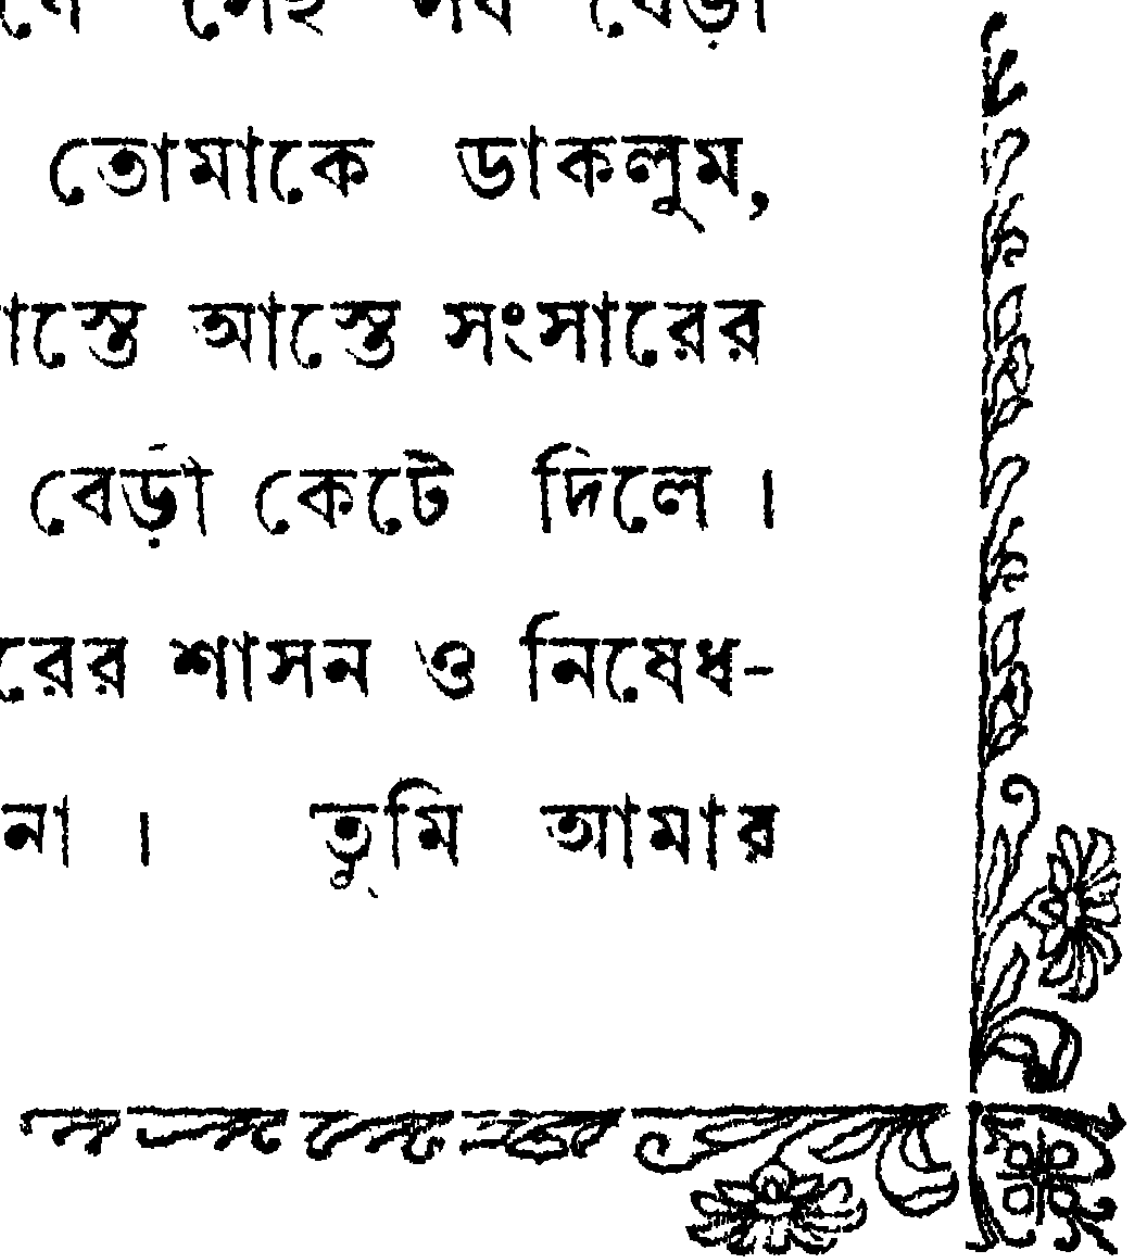 সেই সব বেড়া
তোমাকে ডাকলুম,
আস্তে সংসারের
বেড়া কেটে দিলে ।
শাসন ও নিষেধ-
না । তুমি আমার